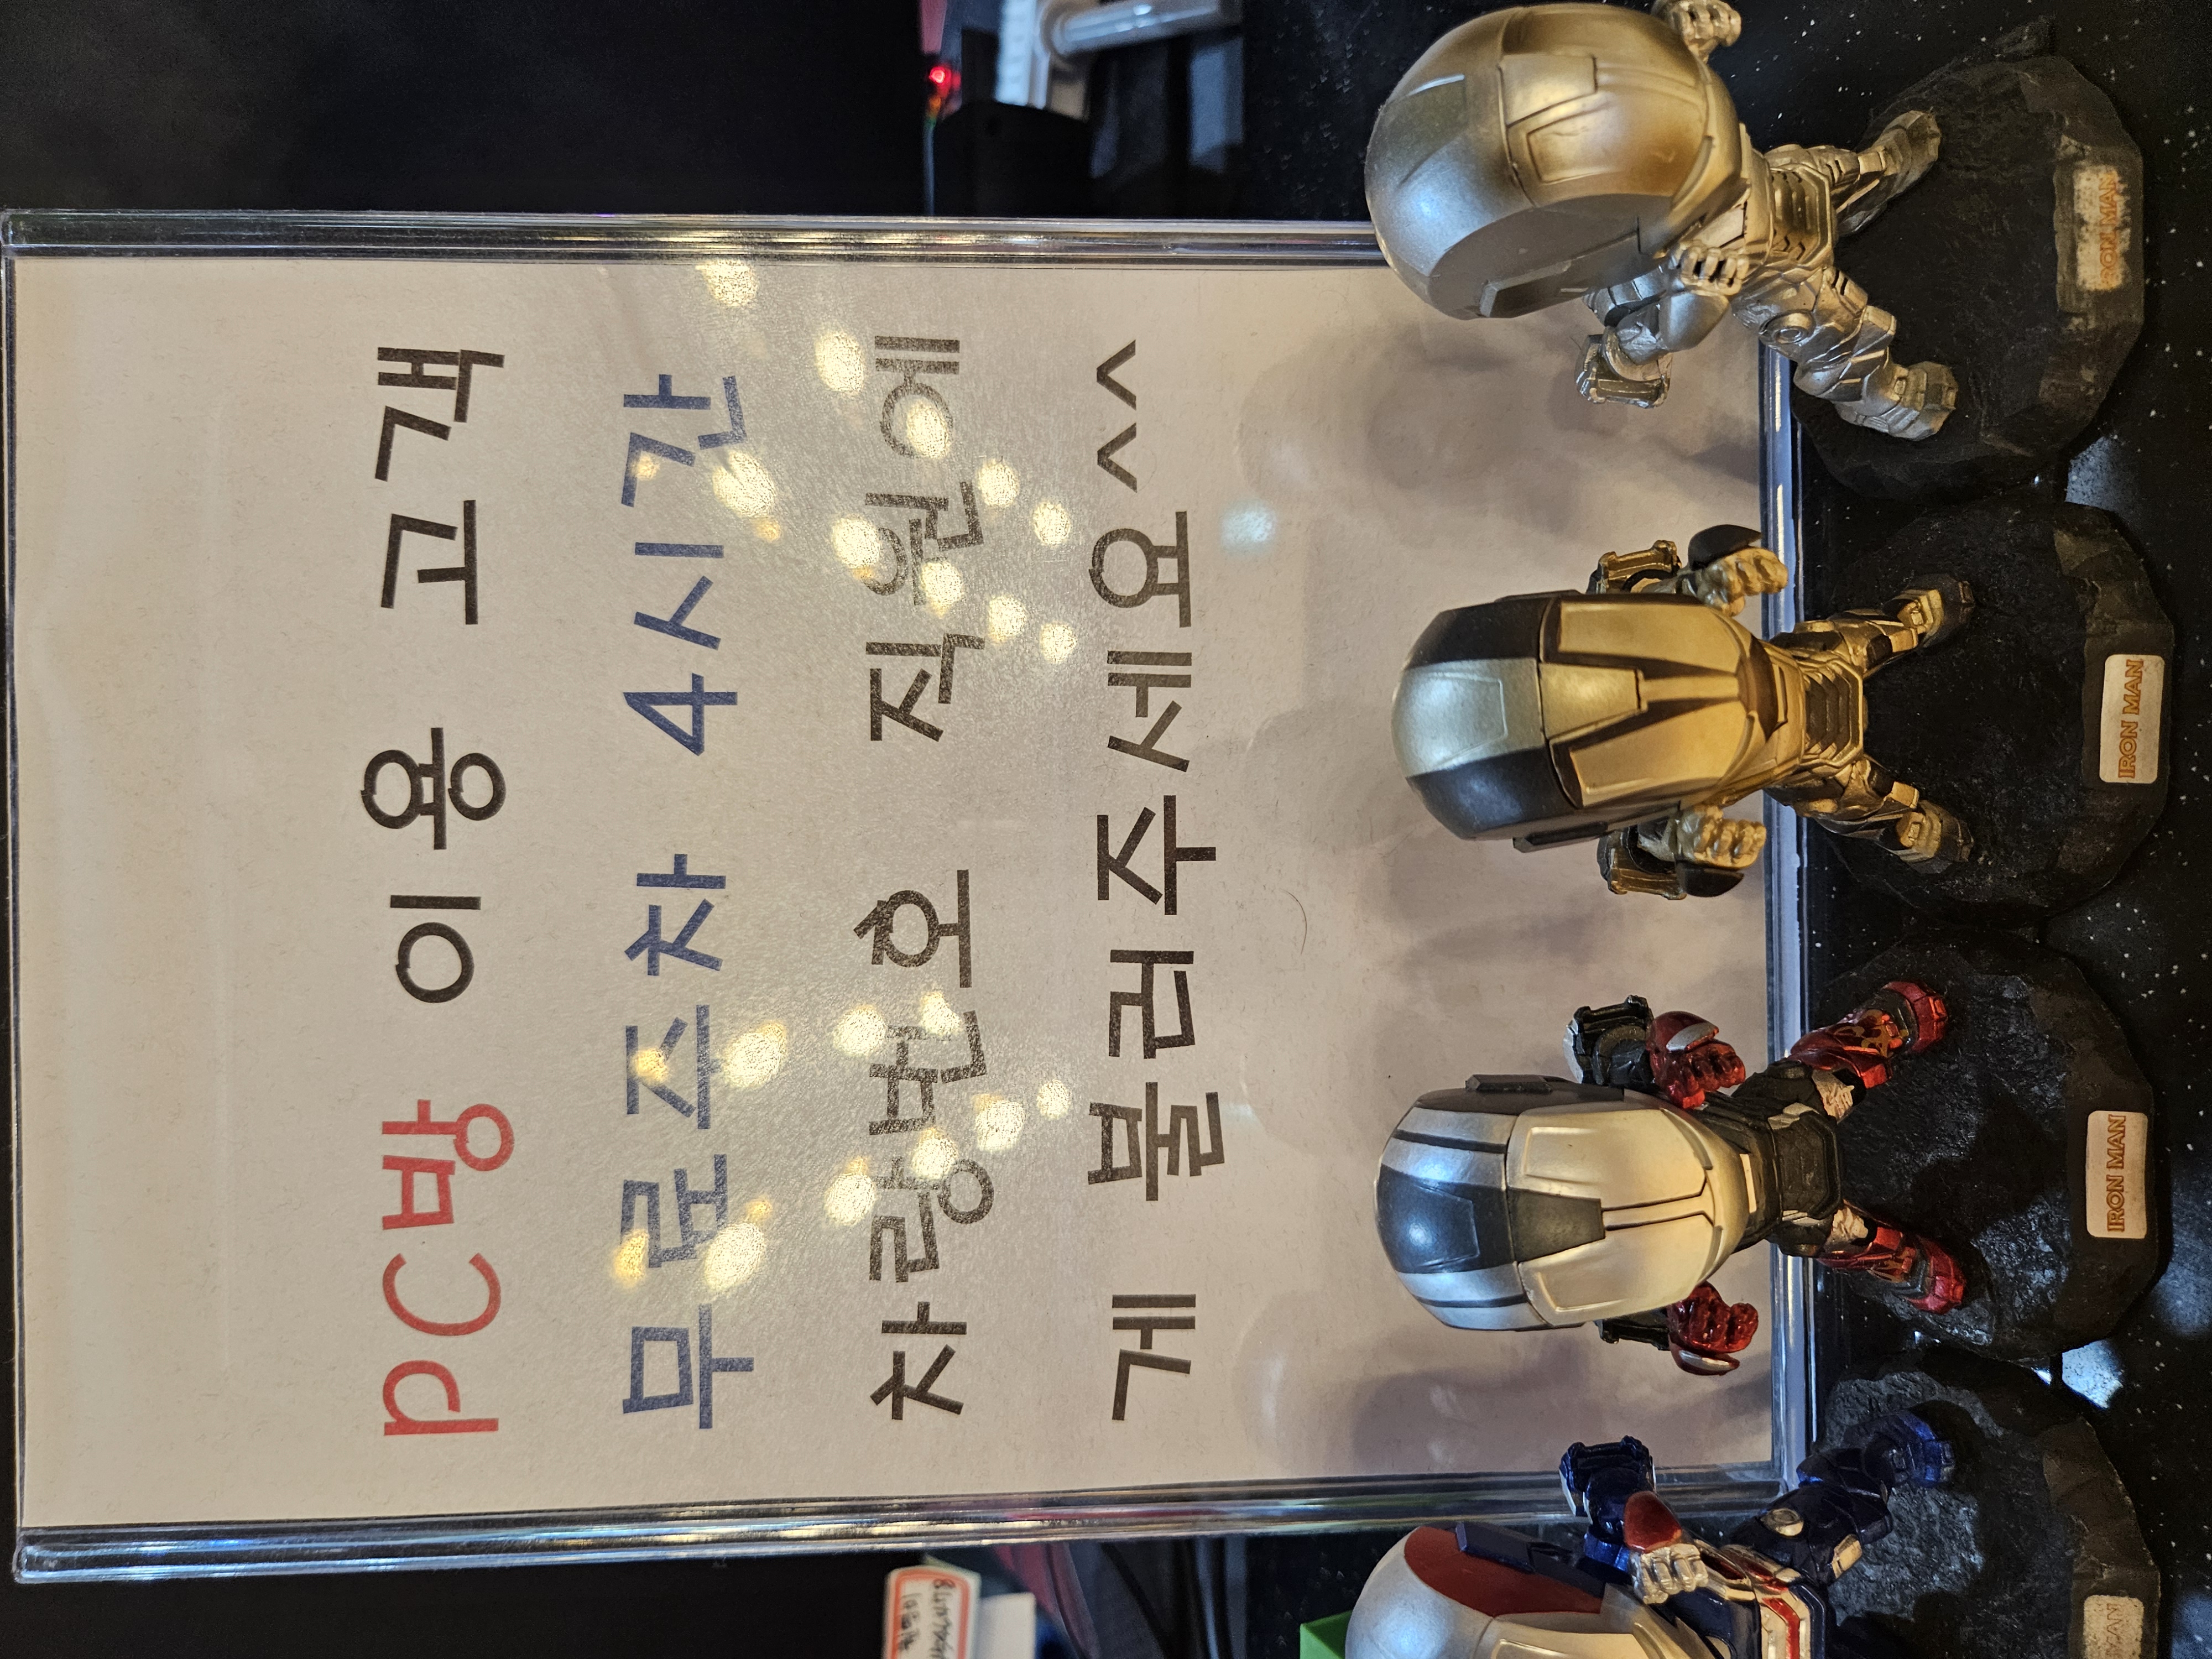 PC방 이용 고객
무료주차 4시간
차량번호 직원에
게 불러주세요^^
IRON MAN
IRON MAN
IRON MAN